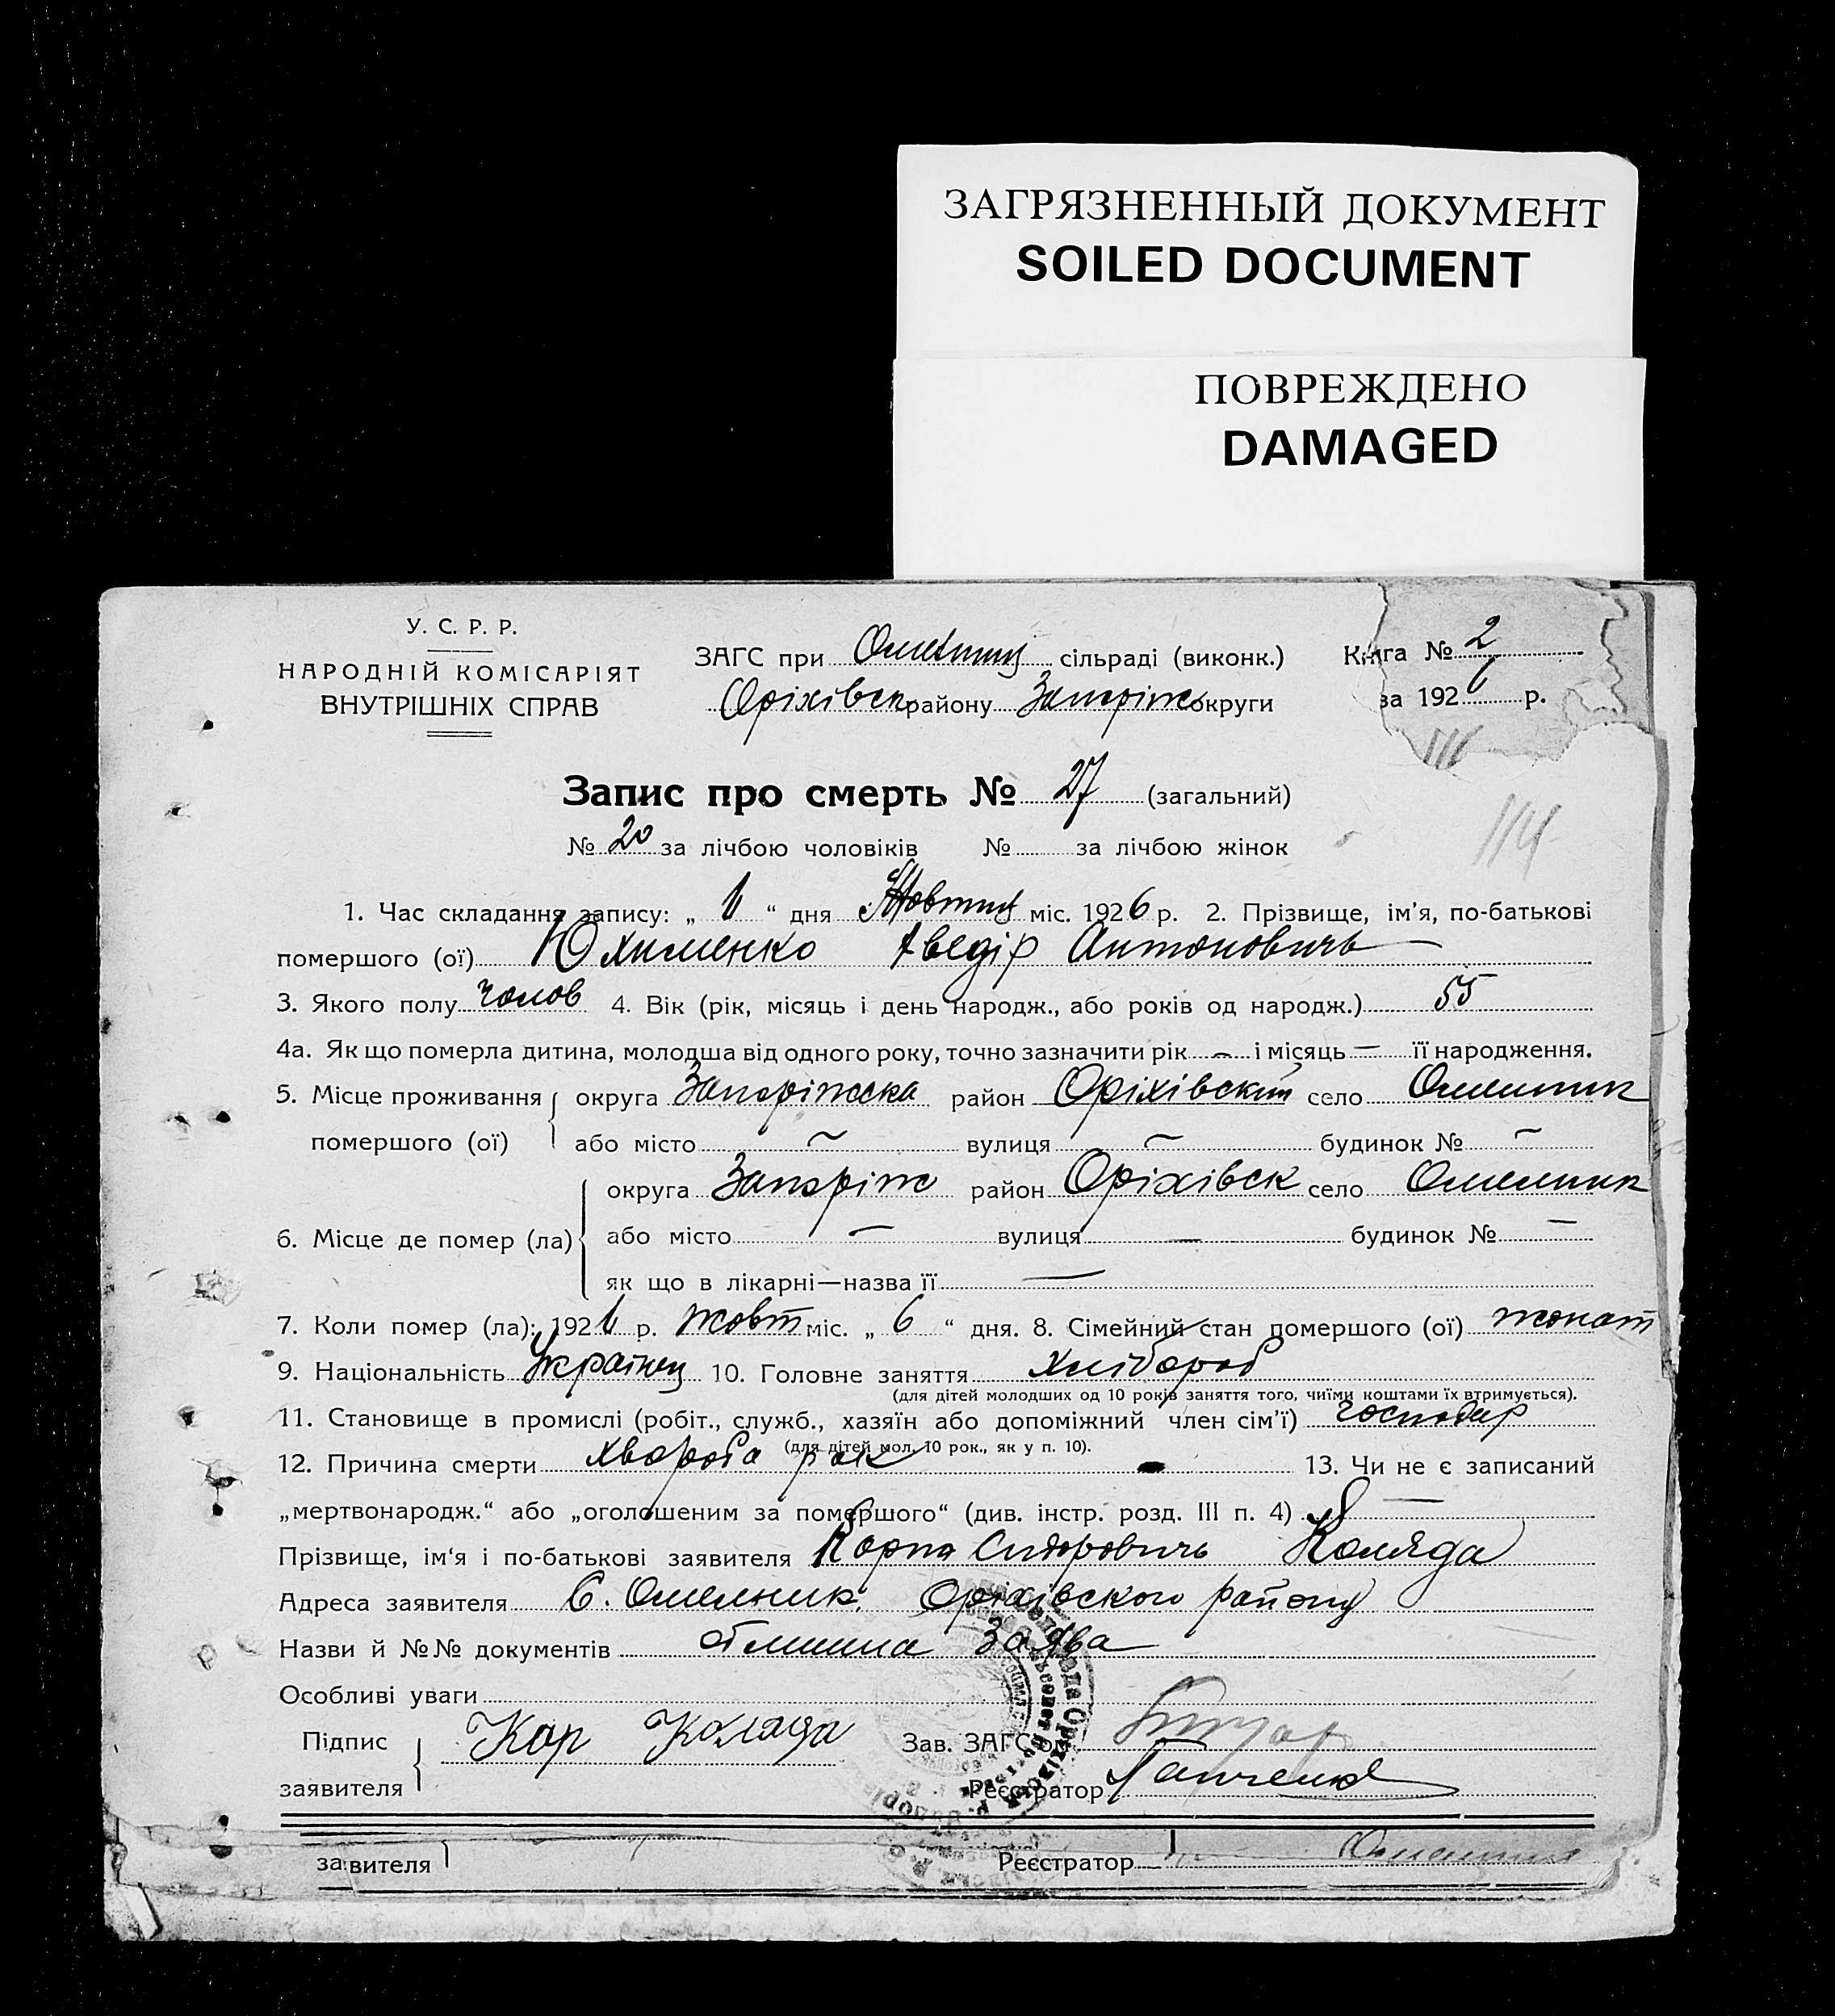 ЗАГРЯЗНЕННЫЙ ДОКУМЕНТ
SOILED DOCUMENT
ПОВРЕЖДЕНО
DAMAGED
У. С. Р. Р.
НАРОДНІЙ КОМІСАРІЯТ
ВНУТРІШНІХ СПРАВ
ЗАГС при сільраді (виконк.)
Оріхівск району Запоріж округи
Книга № 2
за 1926 р.
Запис про смерть № 27 (загальний)
№ 20 за лічбою чоловіків № за лічбою жінок
1. Час складання запису: „ “ дня Жовтня міс. 1926 р. 2. Прізвище, ім’я, по-батькові
помершого (ої) Юхименко Аведір Антоновичь
3. Якого полу чолов 4. Вік (рік, місяць і день народж., або років од народж.) 55
4а. Як що померла дитина, молодша від одного року, точно зазначити рік — і місяць — її народження.
5. Місце проживання округа Запоріжска район Оріхівский село Омельник
помершого (ої) або місто — вулиця — будинок № —
округа Запоріж район Оріхівск село Омельник
6. Місце де помер (ла) або місто — вулиця — будинок № —
як що в лікарні—назва її —
7. Коли помер (ла): 1926 р. жовт міс. „ 6 “ дня. 8. Сімейний стан помершого (ої) жонат
9. Національність Українец 10. Головне заняття хлібороб
(для дітей молодших од 10 років заняття того, чиїми коштами їх втримується).
11. Становище в промислі (робіт., служб., хазяїн або допоміжний член сім’ї) господар
(для дітей мол. 10 рок., як у п. 10).
12. Причина смерти хвороба рак 13. Чи не є записаний
„мертвонародж.“ або „оголошеним за помершого“ (див. інстр. розд. III п. 4) —
Прізвище, ім‘я і по-батькові заявителя Корпо Сидоровичь Коляда
Адреса заявителя С. Омельник Оріхівского району
Назви й №№ документів заява
Особливі уваги
Підпис Кор Коляда Зав. ЗАГС’ом
заявителя Реєстратор Ганченко
заявителя Реєстратор